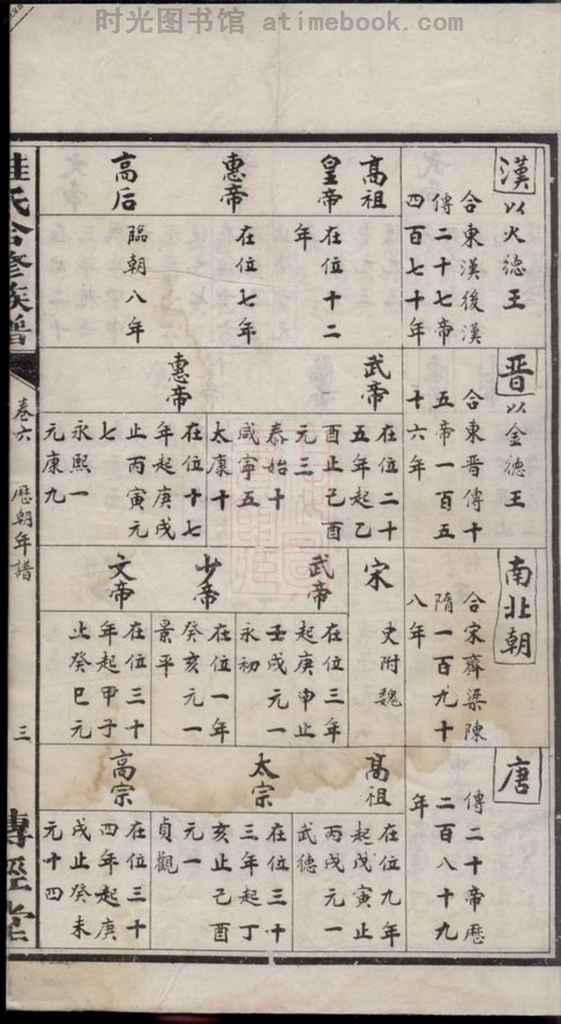 时光图书馆 atimebook.com
漢以火德王
合東漢後漢
傳二十七帝
四百七十年
高祖
皇帝
在位十二
年
惠帝
在位七年
高后
臨朝八年
晋以金德王
合東晋傳十
五帝一百五
十六年
武帝
在位二十
五年起乙
酉止己酉
元三
泰始十
咸寧五
太康十
惠帝
在位十七
年起庚戌
止丙寅元
七
永熙一
元康九
南北朝
合宋齊梁陳
隋一百九十
八年
宋
史附魏
武帝
在位三年
起庚申止
壬戌元一
永初
少帝
在位一年
癸亥元一
景平
文帝
在位三十
年起甲子
止癸巳元
唐
傳二十帝歷
二百八十九
年
高祖
在位九年
起戊寅止
丙戌元一
武德
太宗
在位三十
三年起丁
亥止己酉
元一
貞觀
高宗
在位三十
四年起庚
戌止癸未
元十四
氏合修族譜
卷六
歷朝年譜
三
傳經堂